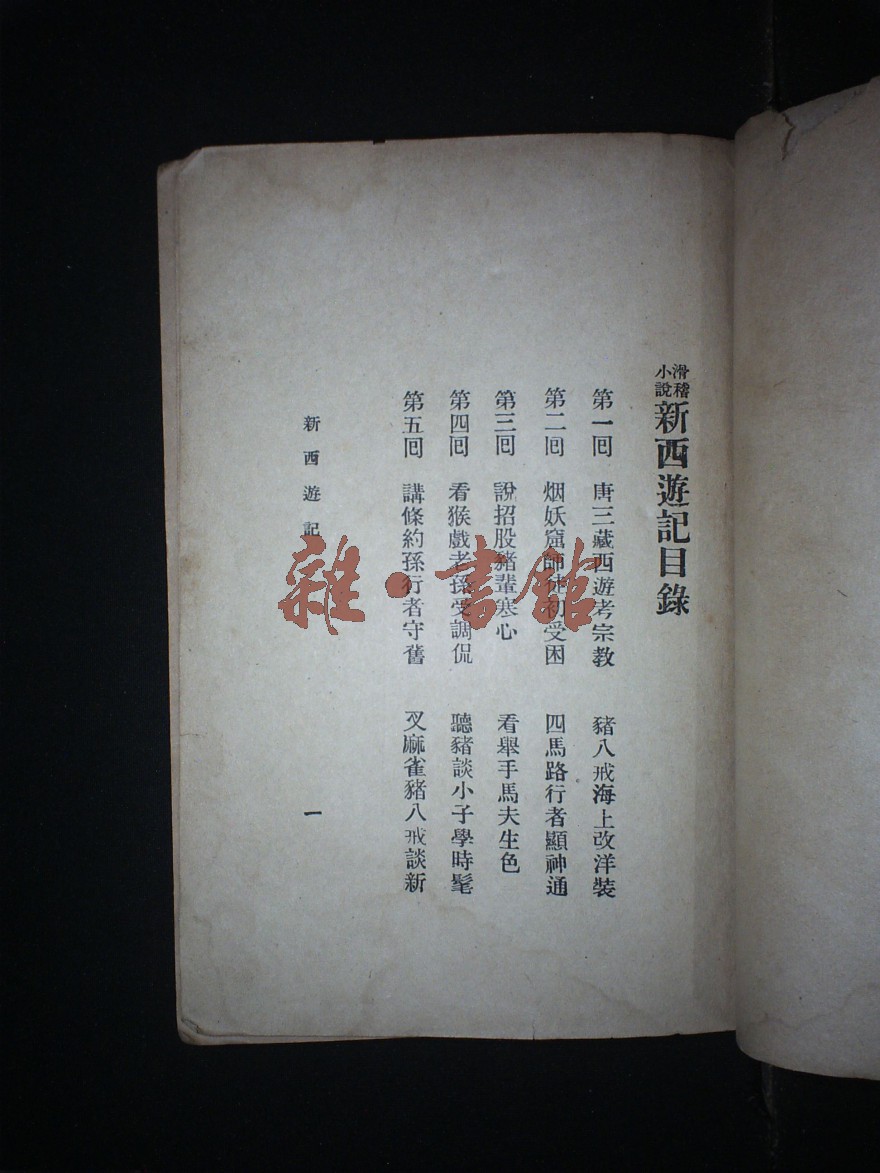 滑稽小說新西遊記目錄
第一回　唐三藏西遊考宗教　豬八戒海上改洋裝
第二回　烟妖窟師徒初受困　四馬路行者顯神通
第三回　說招股豬輩寒心　看舉手馬夫生色
第四回　看猴戲老孫受調侃　聽豬談小子學時髦
第五回　講條約孫行者守舊　叉麻雀豬八戒談新
新西遊記
一
雜·書館